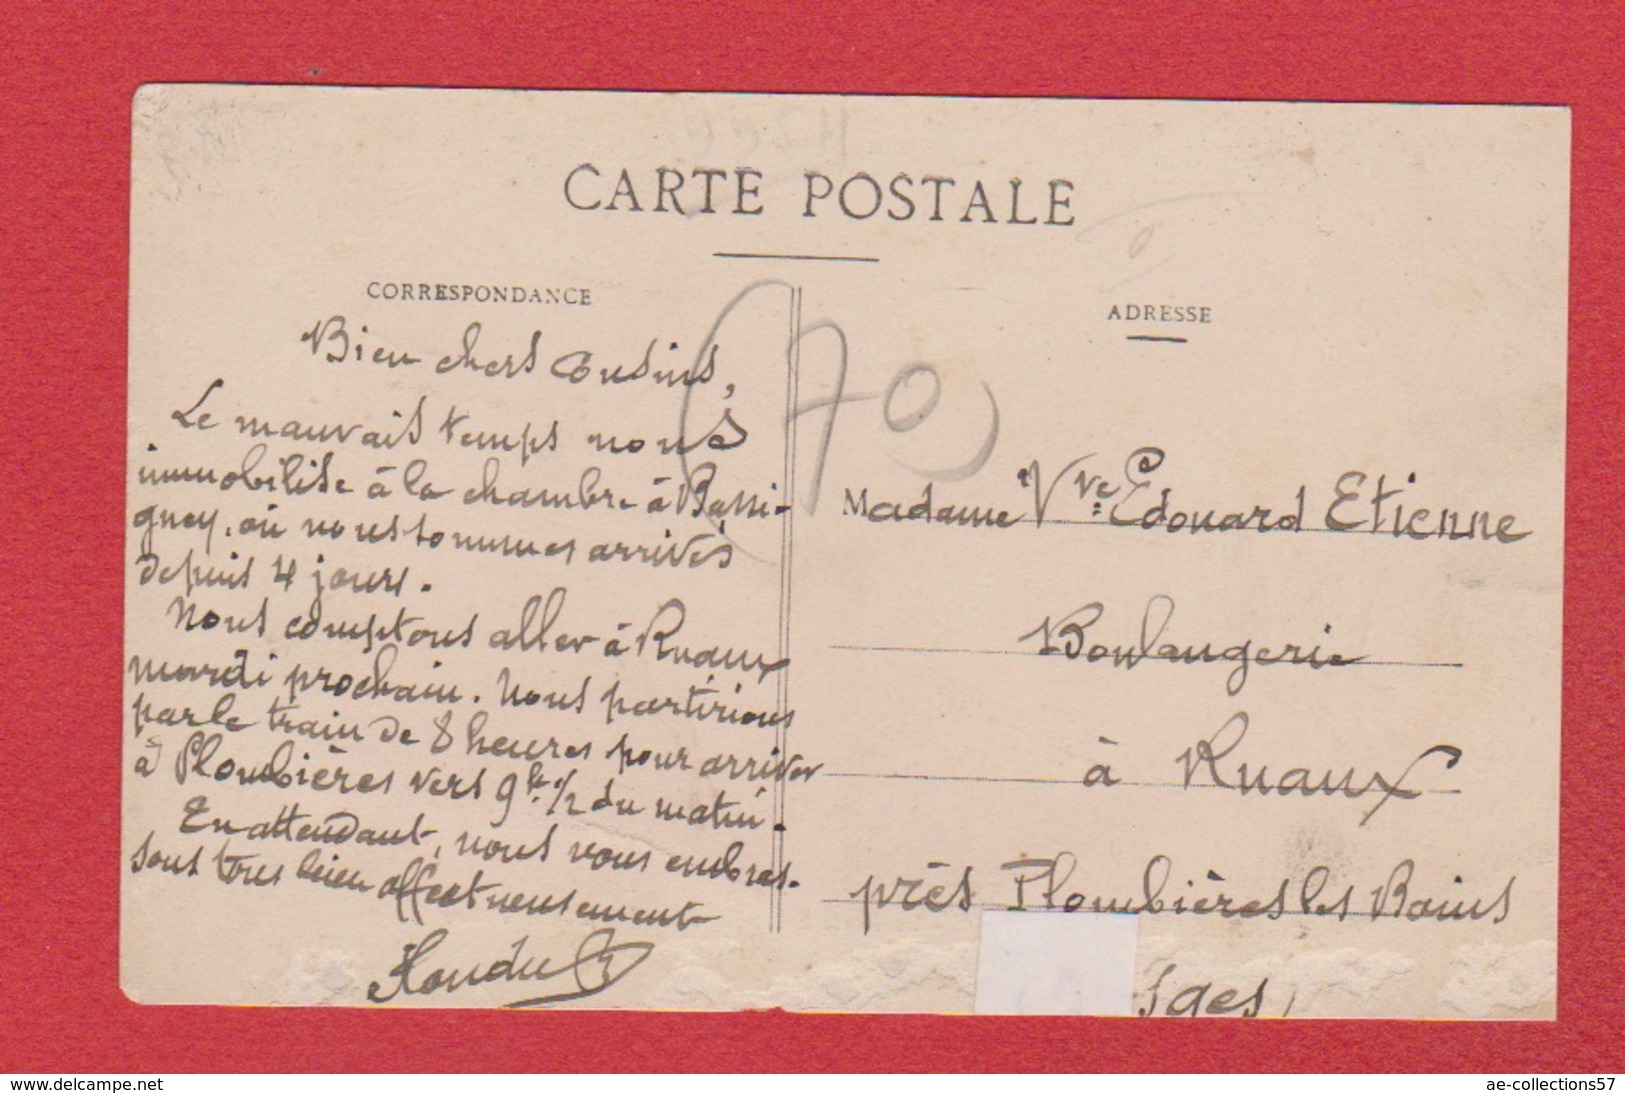 CARTE POSTALE
CORRESPONDANCE
Bien chers Cousins,
Le mauvais temps nous
immobilise à la chambre à Bassi-
gney, où nous sommes arrivés
depuis 4 jours.
Nous comptons aller à Ruaux
mardi prochain. Nous partirions
par le train de 8 heures pour arriver
à Plombières vers 9h 1/2 du matin.
En attendant, nous vous embras-
sons tous bien affectueusement
70
ADRESSE
Madame Vve Edouard Etienne
Boulangerie
à Ruaux
près Plombières les Bains
sges,
www.delcampe.net
ae-collections57